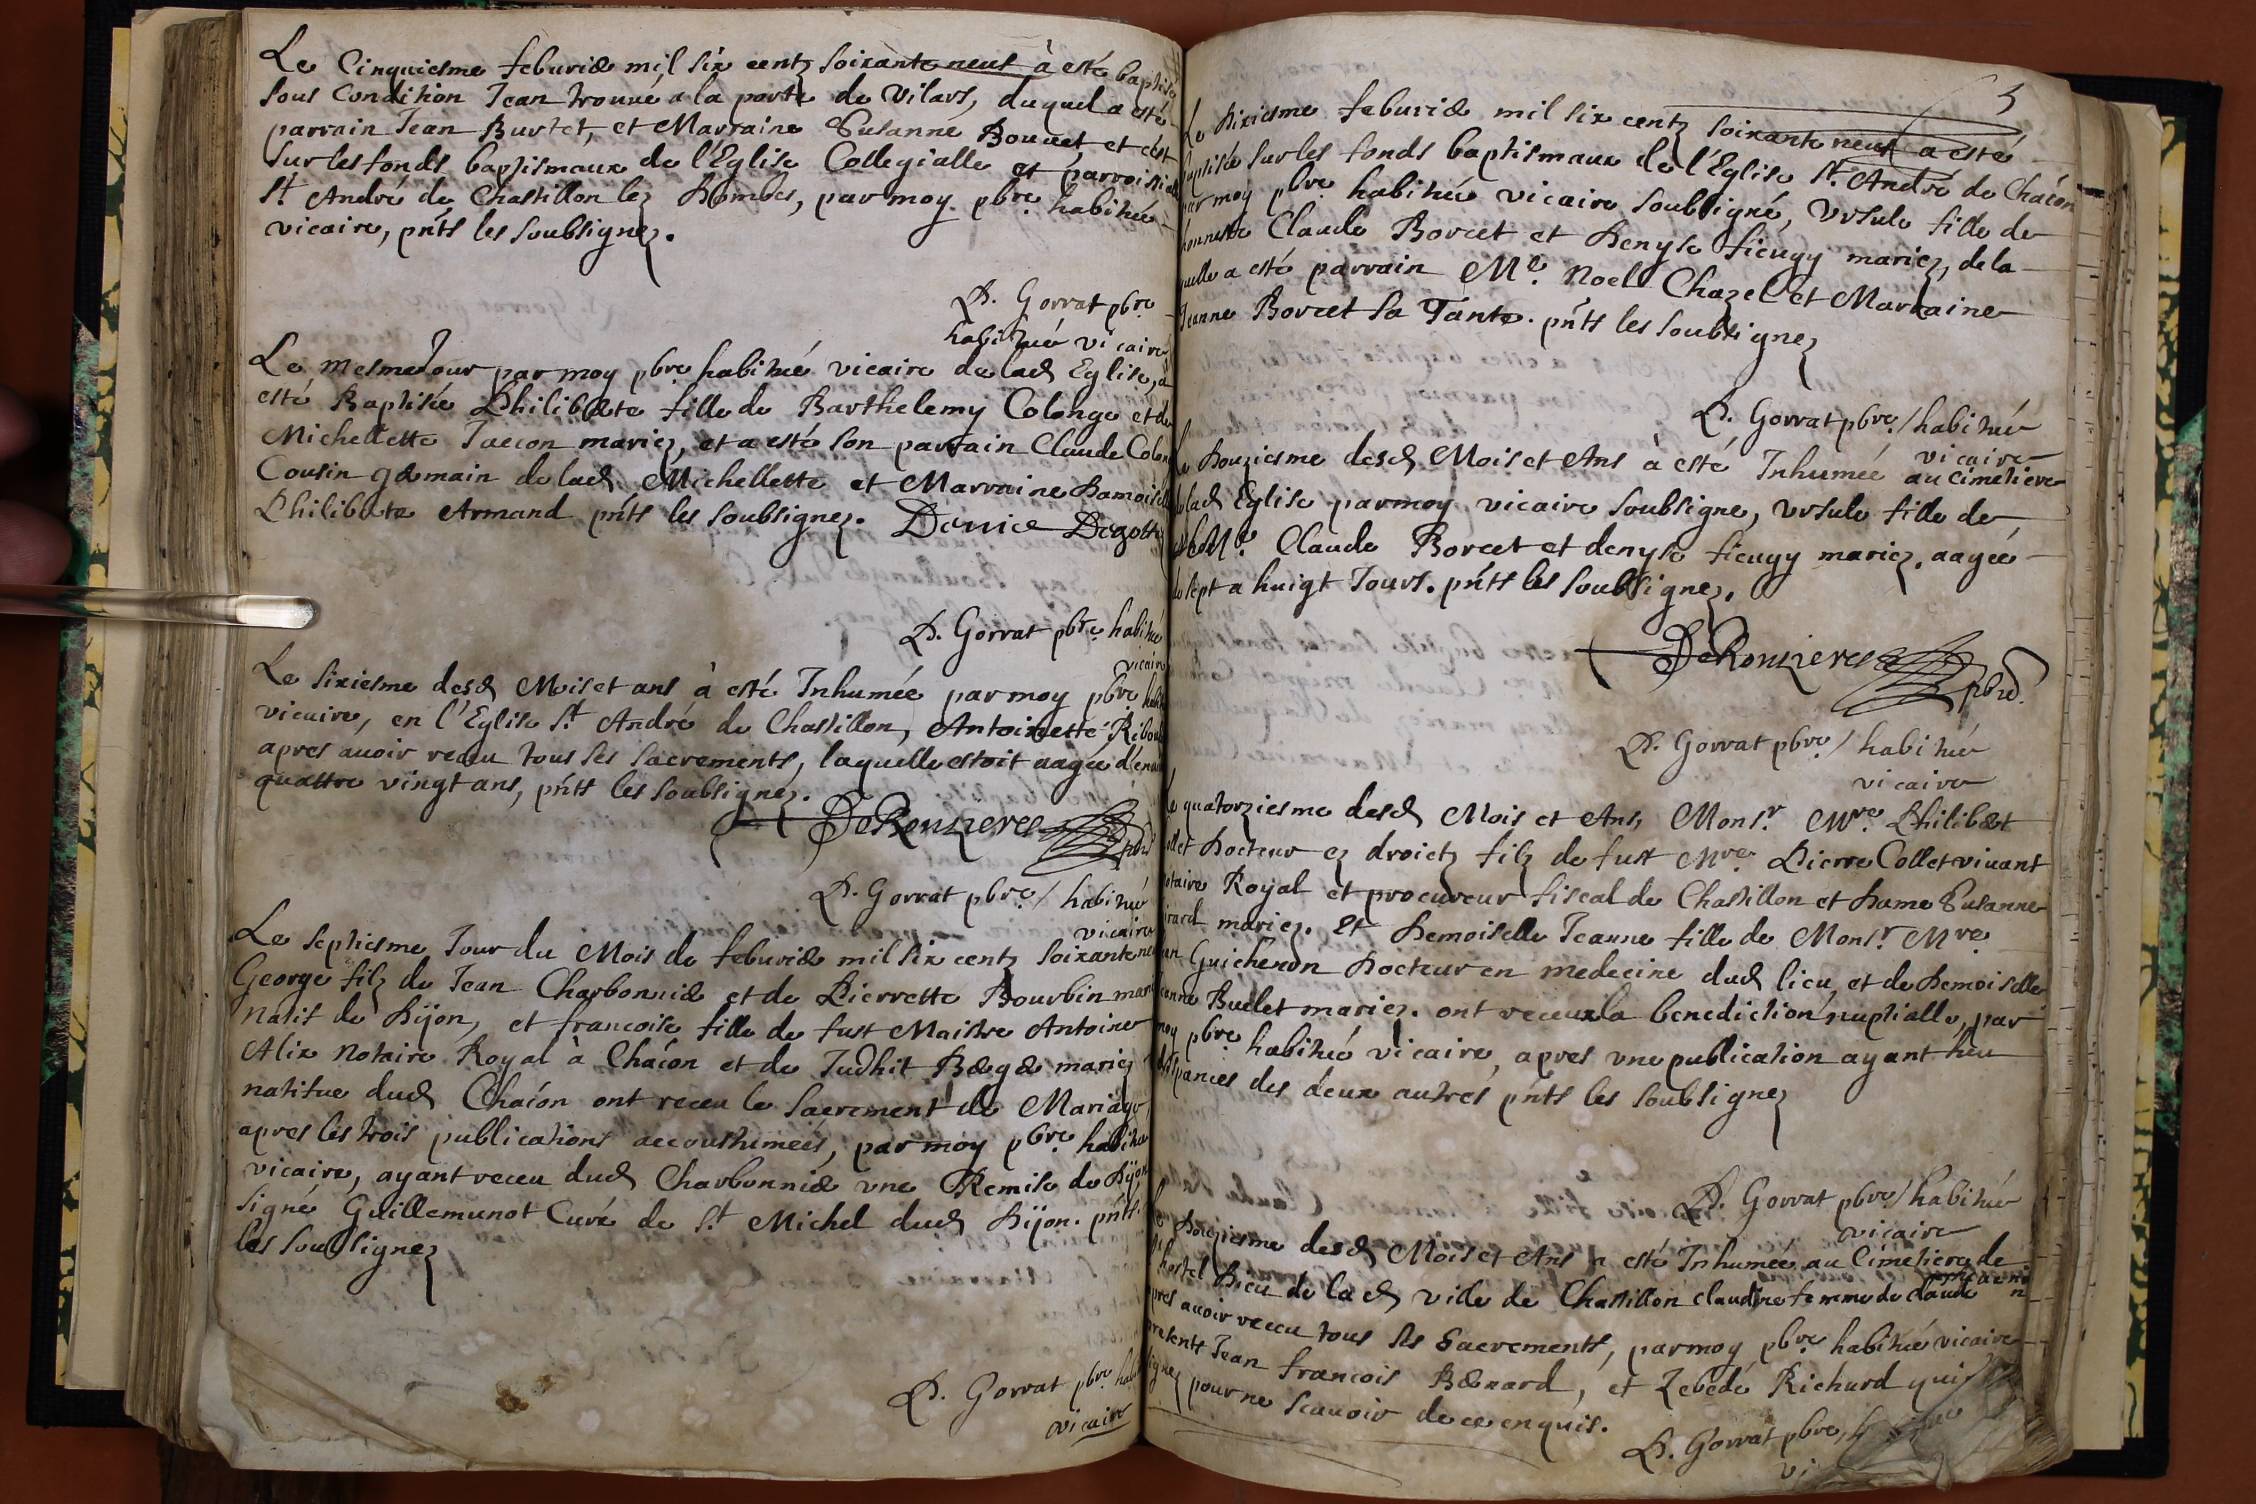 Le Cinquiesme feburier mil six centz soixante neuf à esté baptisé
sous Condition Jean trouué a la porte de Vilars, duquel a esté
parrain Jean Burtet, et Marraine Susanne Bouuet, et c'est
sur les fonds baptismaux de l'Eglise Collegialle et parroissialle
St André de Chastillon lez Dombes, par moy pbre habitué
vicaire, pnts les soubsignez.
P. Gorrat pbre
habitué vicaire
Le mesme Jour par moy pbre habitué vicaire de lad Eglise, à
esté Baptisée Philiberte fille de Barthelemy Colonge et de
Michellette Jacon mariez, et a esté son parrain Claude Colonge
Cousin germain de lad. Michellette et Marraine Damoiselle
Philiberte Armand pnts les soubsignez. Denice
P. Gorrat pbre habitué
vicaire
Le sixiesme desd Mois et ans à esté Inhumée par moy pbre
vicaire, en l'Eglise St André de Chastillon, Antoinette
apres auoir receu tous ses sacrements, laquelle estoit aagée d'enuiron
quattre vingt ans, pnts les soubsignez.
DeRonzieres pbre
P. Gorrat pbre / habitué
vicaire
Le septiesme Jour du Mois de feburier mil six centz soixante neuf
George filz de Jean Charbonnier et de Pierrette Bourbin mariez
natif de Dijon, et francoise fille de fust Maistre Antoine
Alix Notaire Royal à Chaôn et de Judhit Berger mariez
natifue dud Chaôn ont receu le sacrement de Mariage,
apres les trois publications accoustumées, par moy pbre habitué
vicaire, ayant receu dud Charbonnier vne Remise de Dijon
signé Guillemunot Curé de St Michel dud Dijon. pnts
les soubsignez
P. Gorrat pbre
vicaire
5
Le dixiesme feburier mil six centz soixante neuf a esté
baptisée sur les fonds baptismaux de l'Eglise St. André de Chaôn
par moy pbre habitué vicaire soubsigné, Vrsule fille de
honneste Claude Borcet et Denyse mariez, de la
quelle a esté parrain Me. Noel Chazel et Marraine
Jeanne Borcet sa Tante. pnts les soubsignez
P. Gorrat pbre / habitué
vicaire
Le Douziesme desd Mois et Ans à esté Inhumée au Cimetiere
de lad Eglise par moy vicaire soubsigne, Vrsule fille de
Claude Borcet et denyse mariez. aagée
de sept a huigt Jours. pnts les soubsignez.
DeRonzieres pbre
P. Gorrat pbre / habitué
vicaire
Le quatorziesme desd Mois et Ans, Monsr. Mre Philibert
Collet Docteur ez droictz filz de fust Mre. Pierre Collet viuant
Notaire Royal et procureur fiscal de Chastillon et Dame Susanne
mariez. Et Demoiselle Jeanne fille de Monsr Mre
Guichenon Docteur en medecine dud lieu et de Demoiselle
Jeanne Buclet mariez. ont receu la benediction nuptialle, par
moy pbre habitué vicaire, apres vne publication ayant heu
dispances des deux autres pnts les soubsignez
P. Gorrat pbre / habitué
vicaire
Le Douziesme desd Mois et Ans a esté Inhumée au Cimetiere de
l'hostel Dieu de lad ville de Chastillon Claudine femme de Claude
apres auoir receu tous ses Sacrements, par moy pbre habitué vicaire
presents Jean francois Bernard, et Zebedé Richard qui
signez pour ne scauoir de ce enquis.
P. Gorrat pbre,